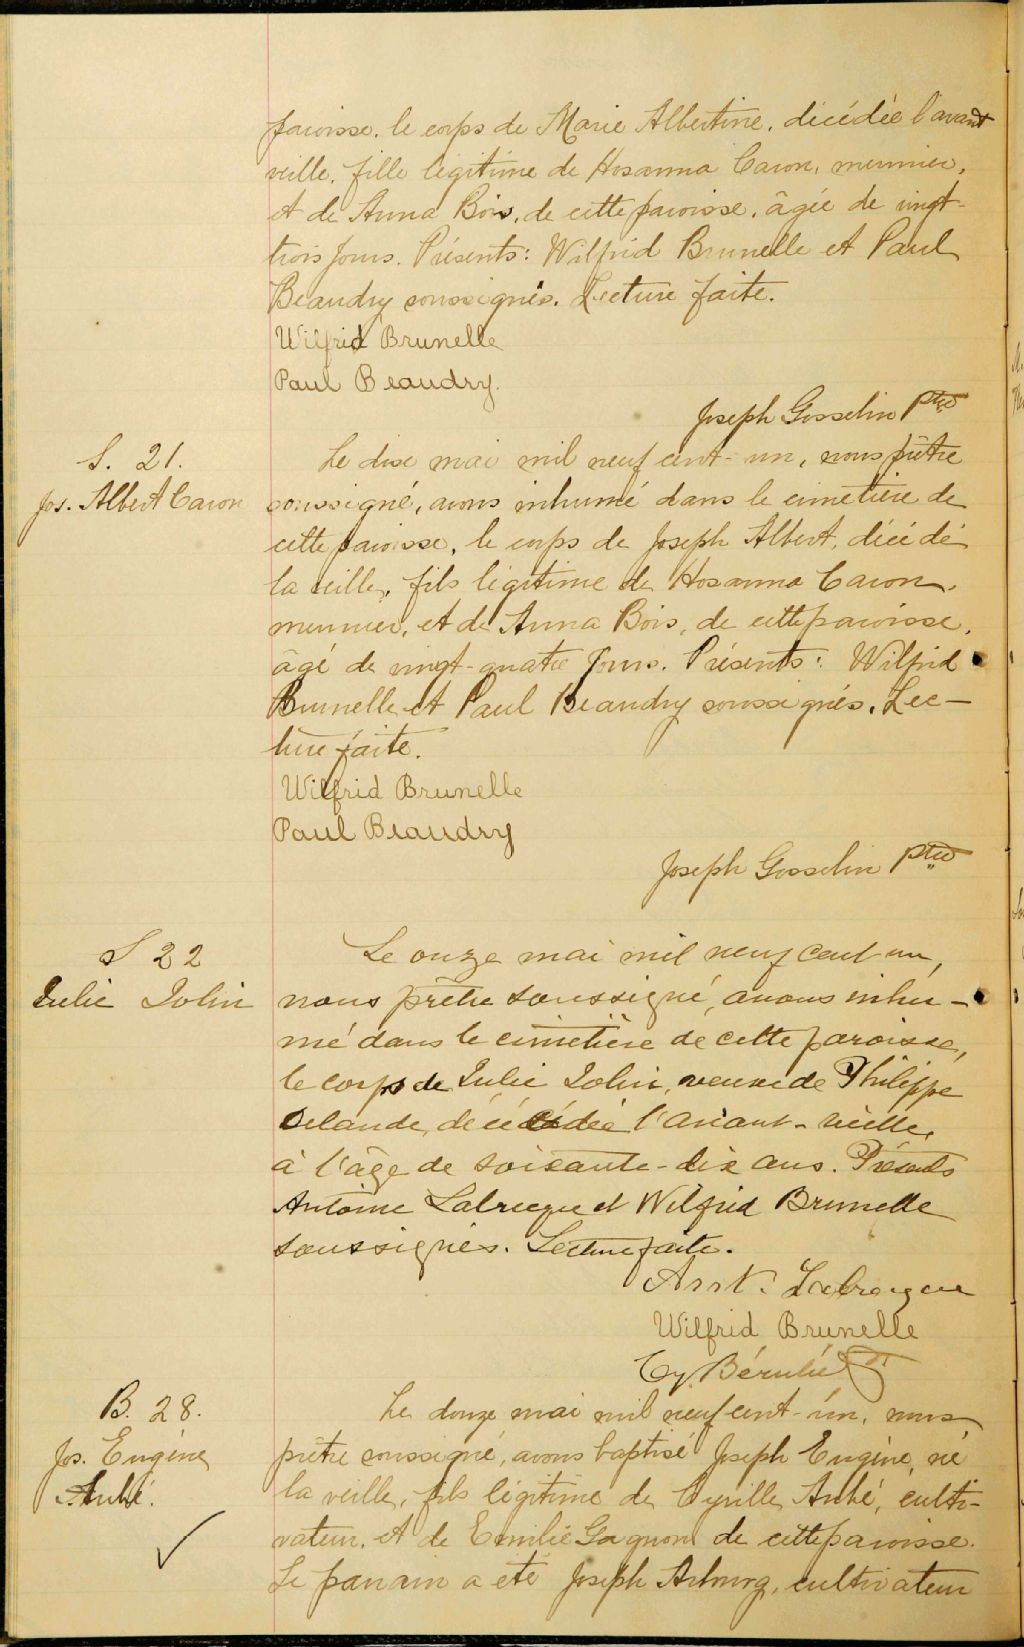 paroisse, le corps de Marie Albertine, décédée l'avant
veille, fille légitime de Hosanna Caron, meunier,
et de Anna Bois, de cette paroisse, âgée de vingt-
trois jours. Présents: Wilfrid Brunelle et Paul
Beaudry soussignés. Lecture faite.
Wilfrid Brunelle
Paul Beaudry.
Joseph Gosselin Ptre
S. 21.
Jos. Albert Caron
Le dix mai mil neuf cent-un, nous prêtre
soussigné, avons inhumé dans le cimetière de
cette paroisse, le corps de Joseph Albert, décédé
la veille, fils légitime de Hosanna Caron,
meunier, et de Anna Bois, de cette paroisse,
âgé de vingt-quatre jours. Présents: Wilfrid
Brunelle et Paul Beaudry soussignés. Lec-
ture faite.
Wilfrid Brunelle
Paul Beaudry
Joseph Gosselin Ptre
S 22
Julie Jolin
Le onze mai mil neuf cent un,
nous prêtre soussigné, avons inhu-
mé dans le cimetière de cette paroisse,
le corps de Julie Jolin, veuve de Philippe
décédée l'avant-veille,
à l'âge de soixante-dix ans. Présents
Antoine Labrecque et Wilfrid Brunelle
soussignés. Lecture faite.
Ant. Labrecque
Wilfrid Brunelle
Cy. Bérubé
B. 28.
Jos. Eugène
Aubé.
Le douze mai mil neuf cent-un, nous
prêtre soussigné, avons baptisé Joseph Eugène, né
la veille, fils légitime de Cyrille Aubé, culti-
vateur, et de Emilie Gagnon de cette paroisse.
Le parrain a été Joseph cultivateur